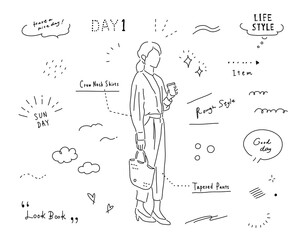 Have a
nice day!
DAY1
LIFE
STYLE
Crew Neck Shirts
Item
Rough Style
SUN
DAY
Good
day
Tapered Pants
"Look Book"